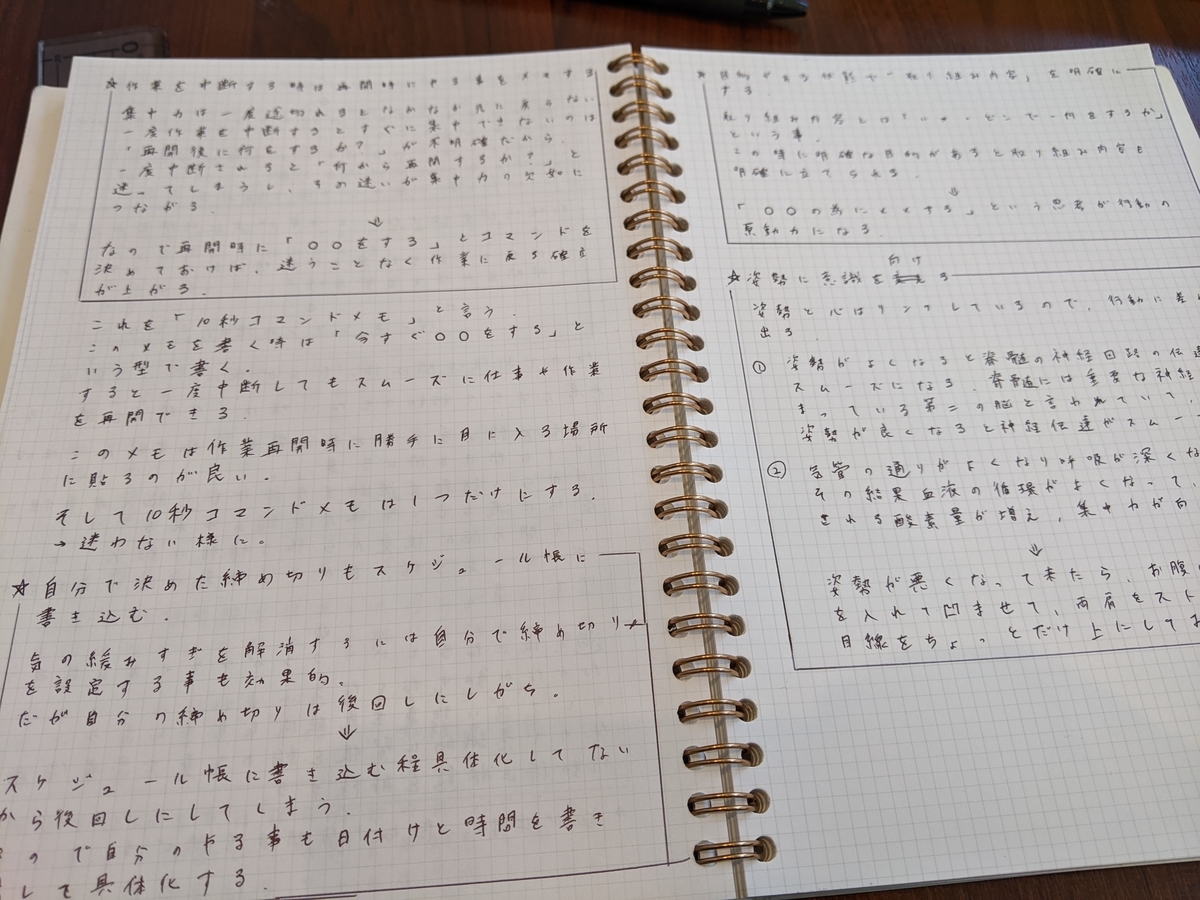 ☆作業を中断する時は再開時にやる事をメモする
集中力は一度途切れるとなかなか元に戻らない
一度作業を中断するとすぐに集中できないのは
「再開後に何をするか?」が不明確だから.
一度中断されると「何から再開するか?」と
迷ってしまうし、その迷いが集中力の欠如に
つながる.
⇓
なので再開時に「〇〇をする」とコマンドを
決めておけば、迷うことなく作業に戻る確立
が上がる.
これを「10秒コマンドメモ」と言う.
このメモを書く時は「今すぐ〇〇をする」と
いう型で書く.
すると一度中断してもスムーズに仕事や作業
を再開できる.
このメモは作業再開時に勝手に目に入る場所
に貼るのが良い.
そして10秒コマンドメモは1つだけにする.
→迷わない様に。
☆自分で決めた締め切りもスケジュール帳に
書き込む.
気の緩みすぎを解消するには自分で締め切り
を設定する事も効果的.
だが自分の締め切りは後回しにしがち.
⇓
スケジュール帳に書き込む程具体化してない
から後回しにしてしまう.
ので自分のやる事も日付けと時間を書き
して具体化する.
「取り組み内容」を明確に
する.
取り組み内容とは「いつ・どこで・何をするか」
という事.
この時に明確な目的があると取り組み内容も
明確に立てられる.
⇓
「〇〇の為に××する」という思考が行動の
原動力になる.
☆姿勢に意識を向ける
姿勢と心はリンクしているので、行動に差
出る.
① 姿勢がよくなると脊髄の神経回路の伝達
スムーズになる. 脊髄には重要な神経
まっている第二の脳と言われていて、
姿勢が良くなると神経伝達がスムー
② 気管の通りがよくなり呼吸が深くな
その結果血液の循環がよくなって、
される酸素量が増え、集中力が向
⇓
姿勢が悪くなって来たら、お腹
を入れて凹ませて、両肩をスト
目線をちょっとだけ上にしてお